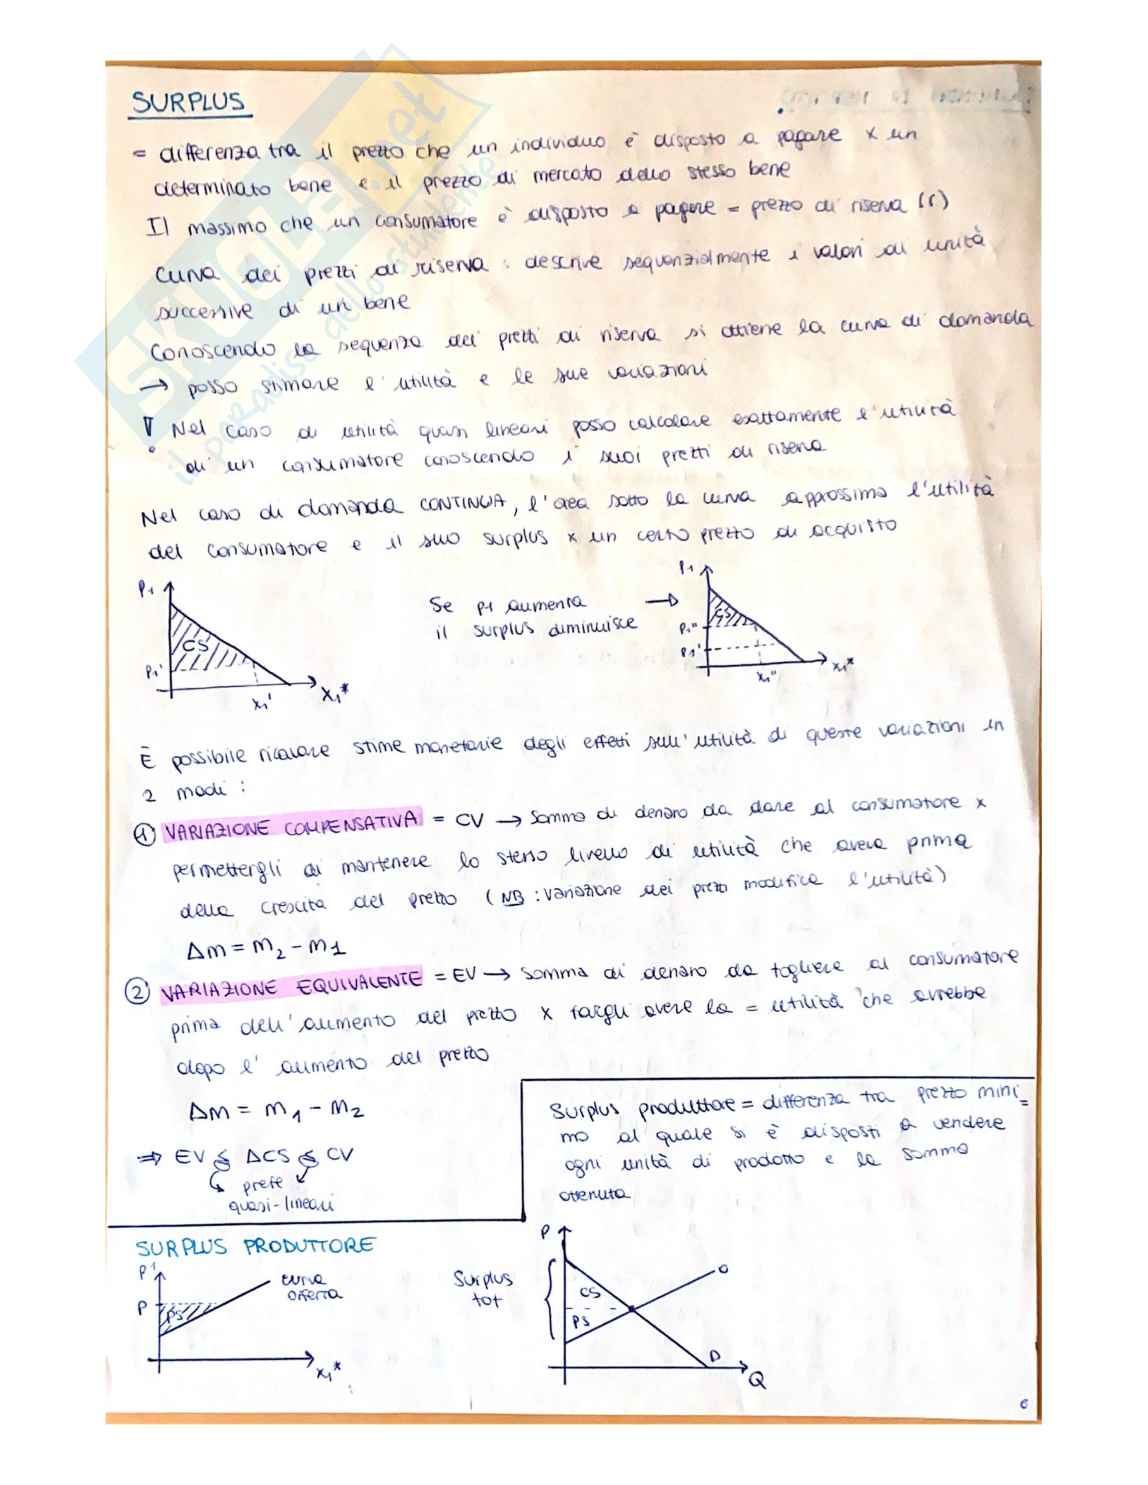 SURPLUS
= differenza tra il prezzo che un individuo è disposto a pagare x un
determinato bene e il prezzo di mercato dello stesso bene
Il massimo che un consumatore è disposto a pagare = prezzo di riserva (r)
Curva dei prezzi di riserva : descrive sequenzialmente i valori di unità
successive di un bene
Conoscendo la sequenza dei prezzi di riserva si ottiene la curva di domanda
→ posso stimare l'utilità e le sue variazioni
! Nel caso di utilità quasi lineari posso calcolare esattamente l'utilità
di un consumatore conoscendo i suoi prezzi di riserva
Nel caso di domanda CONTINUA, l'area sotto la curva approssima l'utilità
del consumatore e il suo surplus x un certo prezzo di acquisto
P1
CS
P1'
x1'
x1*
Se p1 aumenta →
il surplus diminuisce
P1
CS
P1"
P1'
x1"
x1*
È possibile ricavare stime monetarie degli effetti sull'utilità di queste variazioni in
2 modi :
① VARIAZIONE COMPENSATIVA = CV → somma di denaro da dare al consumatore x
permettergli di mantenere lo stesso livello di utilità che aveva prima
della crescita del prezzo (NB : variazione dei prezzi modifica l'utilità)
Δm = m2 - m1
② VARIAZIONE EQUIVALENTE = EV → somma di denaro da togliere al consumatore
prima dell'aumento del prezzo x fargli avere la = utilità che avrebbe
dopo l'aumento del prezzo
Δm = m1 - m2
⇒ EV ≤ ΔCS ≤ CV
prefe
quasi-lineari
Surplus produttore = differenza tra prezzo mini=
mo al quale si è disposti a vendere
ogni unità di prodotto e la somma
ottenuta
SURPLUS PRODUTTORE
P1
P
PS
curva
offerta
x1*
Surplus
tot
P
CS
PS
O
D
Q
6
SKUOLA.net
il paradiso dello studente